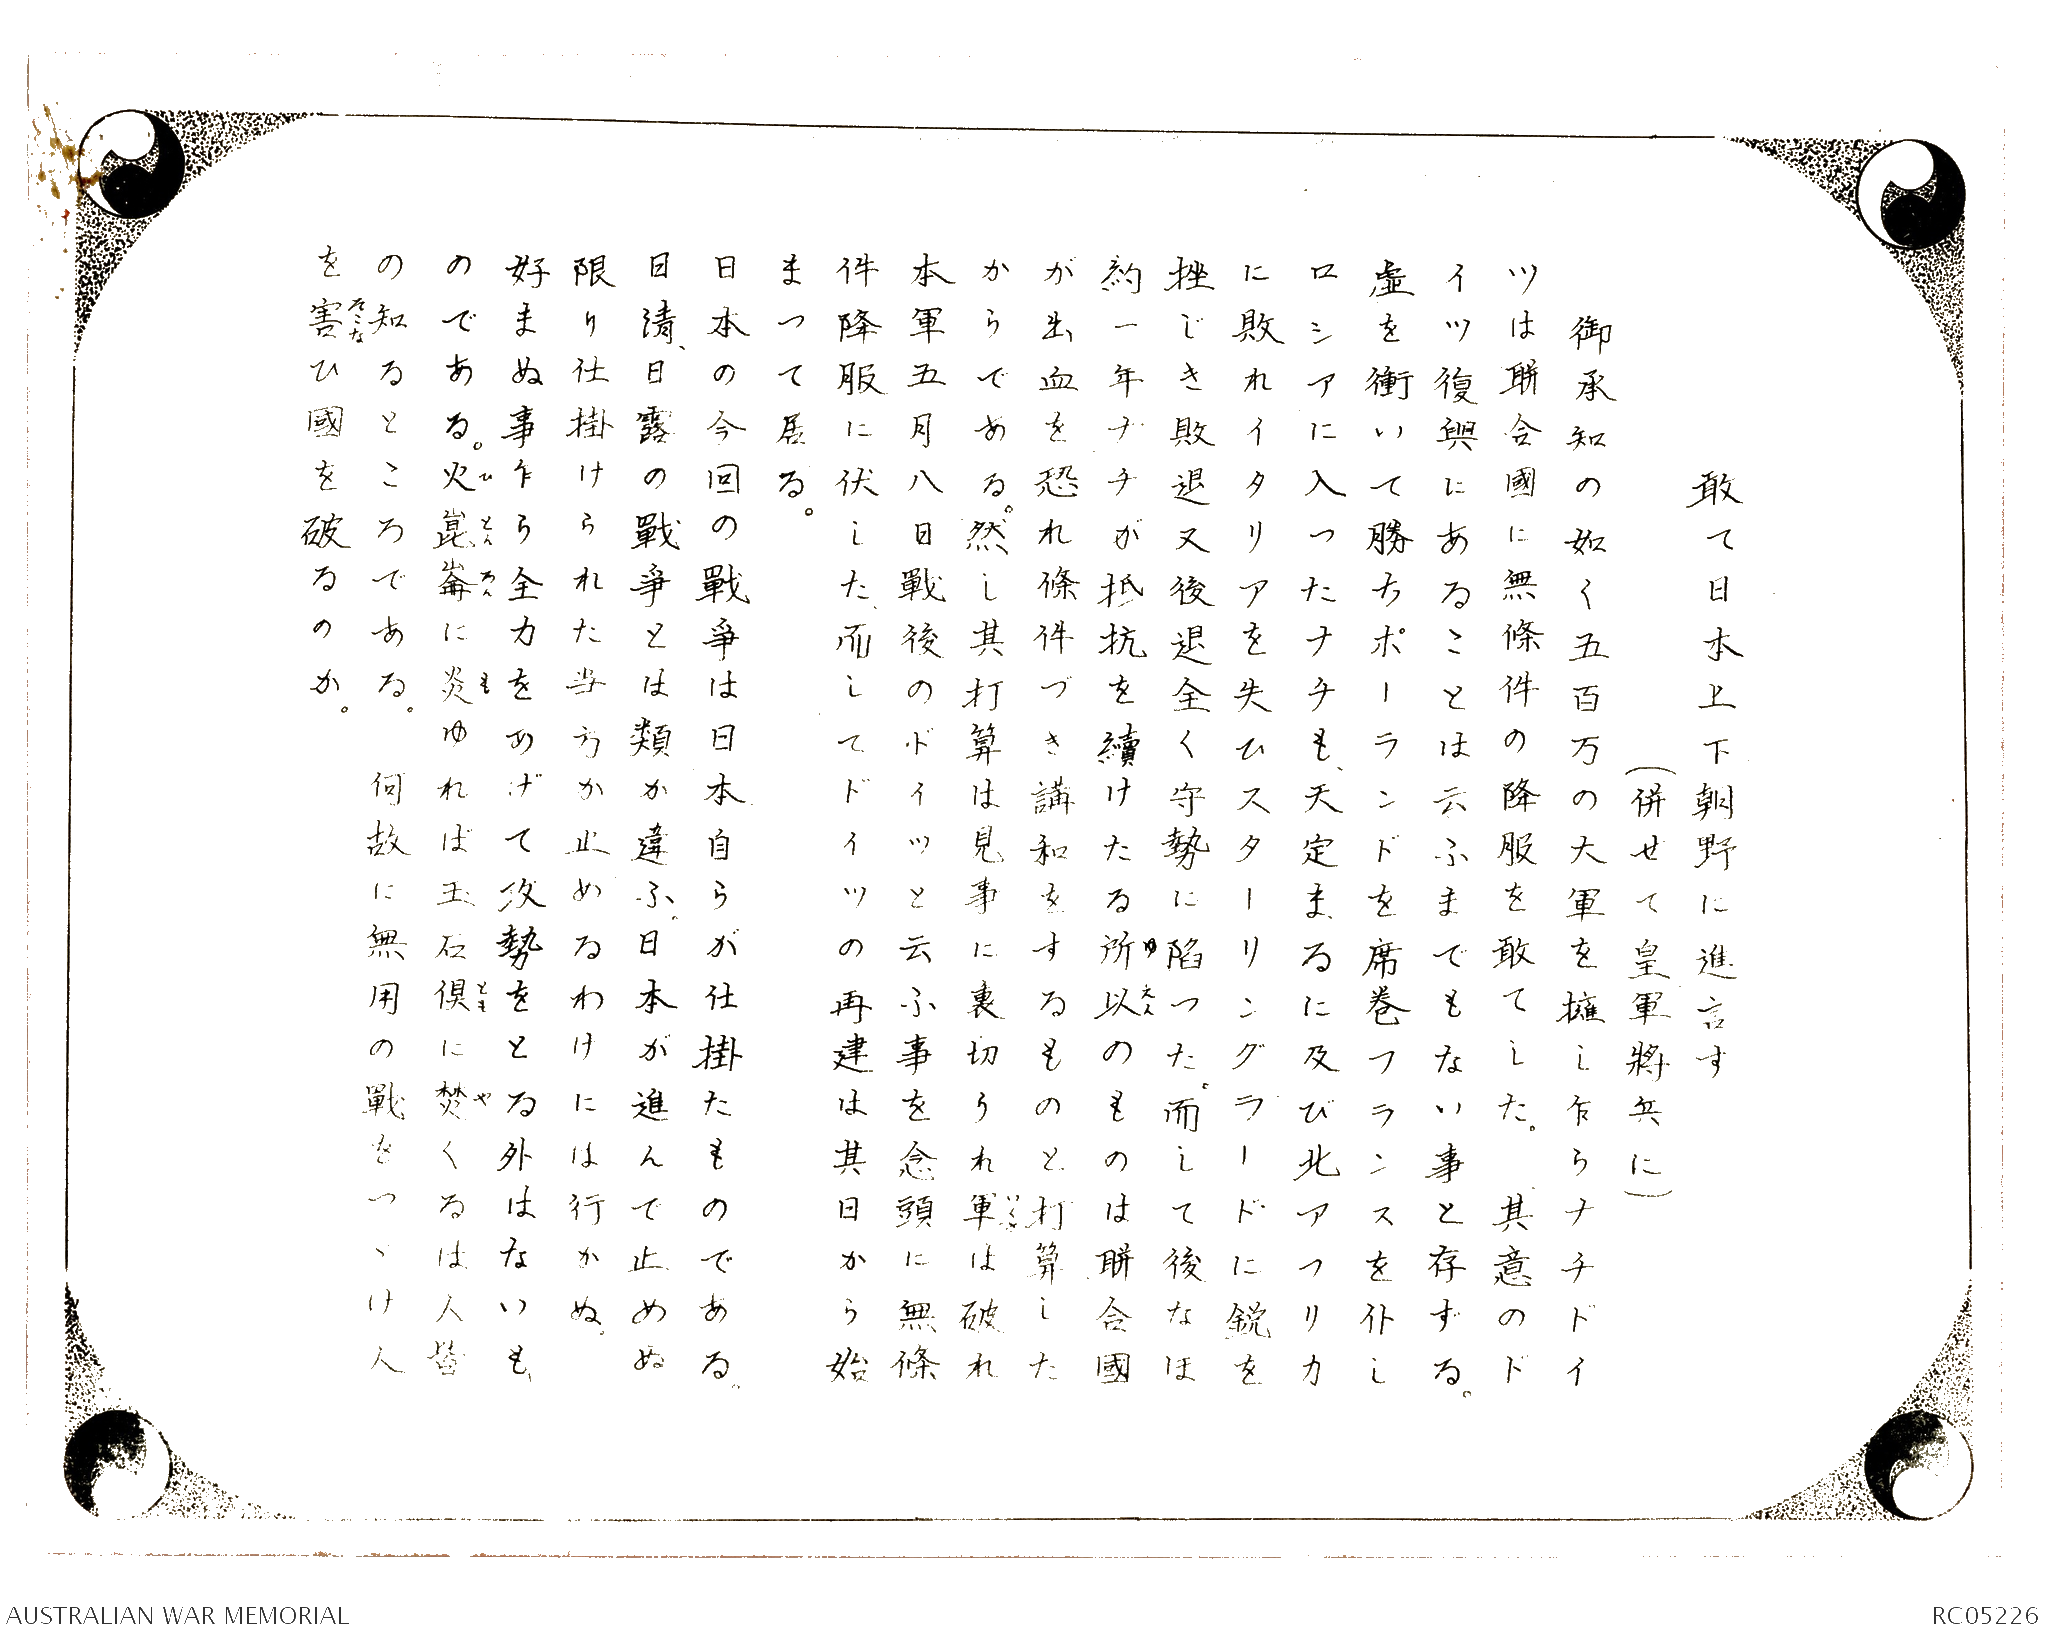 敢て日本上下朝野に進言す
(併せて皇軍將兵に)
御承知の如く五百万の大軍を擁し乍らナチドイ
ツは聯合國に無條件の降服を敢てした。其意のド
イツ復興にあることは云ふまでもない事と存ずる。
虚を衝いて勝ちポーランドを席巻フランスを仆し
ロシアに入つたナチも、天定まるに及び北アフリカ
に敗れイタリアを失ひスターリングラードに鋭を
挫じき敗退又後退全く守勢に陷つた。而して後なほ
約一年ナチが抵抗を續けたる所以のものは聯合國
ゆえん
が出血を恐れ條件づき講和をするものと打算した
からである。然し其打算は見事に裏切られ軍は破れ
いくさ
本軍五月八日戰後のドイツと云ふ事を念頭に無條
件降服に伏した、而してドイツの再建は其日から始
まつて居る。
日本の今回の戰爭は日本自らが仕掛たものである。
日清、日露の戰爭とは類か違ふ。日本が進んで止めぬ
限り仕掛けられた当方か止めるわけには行かぬ。
好まぬ事乍ら全力をあげて攻勢をとる外はないも、
のである。火崑崙に炎ゆれば玉石倶に焚くるは人皆
ひ こんろん も とも や
の知るところである。 何故に無用の戰をつゞけ人
を害ひ國を破るのか。
そこな
AUSTRALIAN WAR MEMORIAL
RC05226